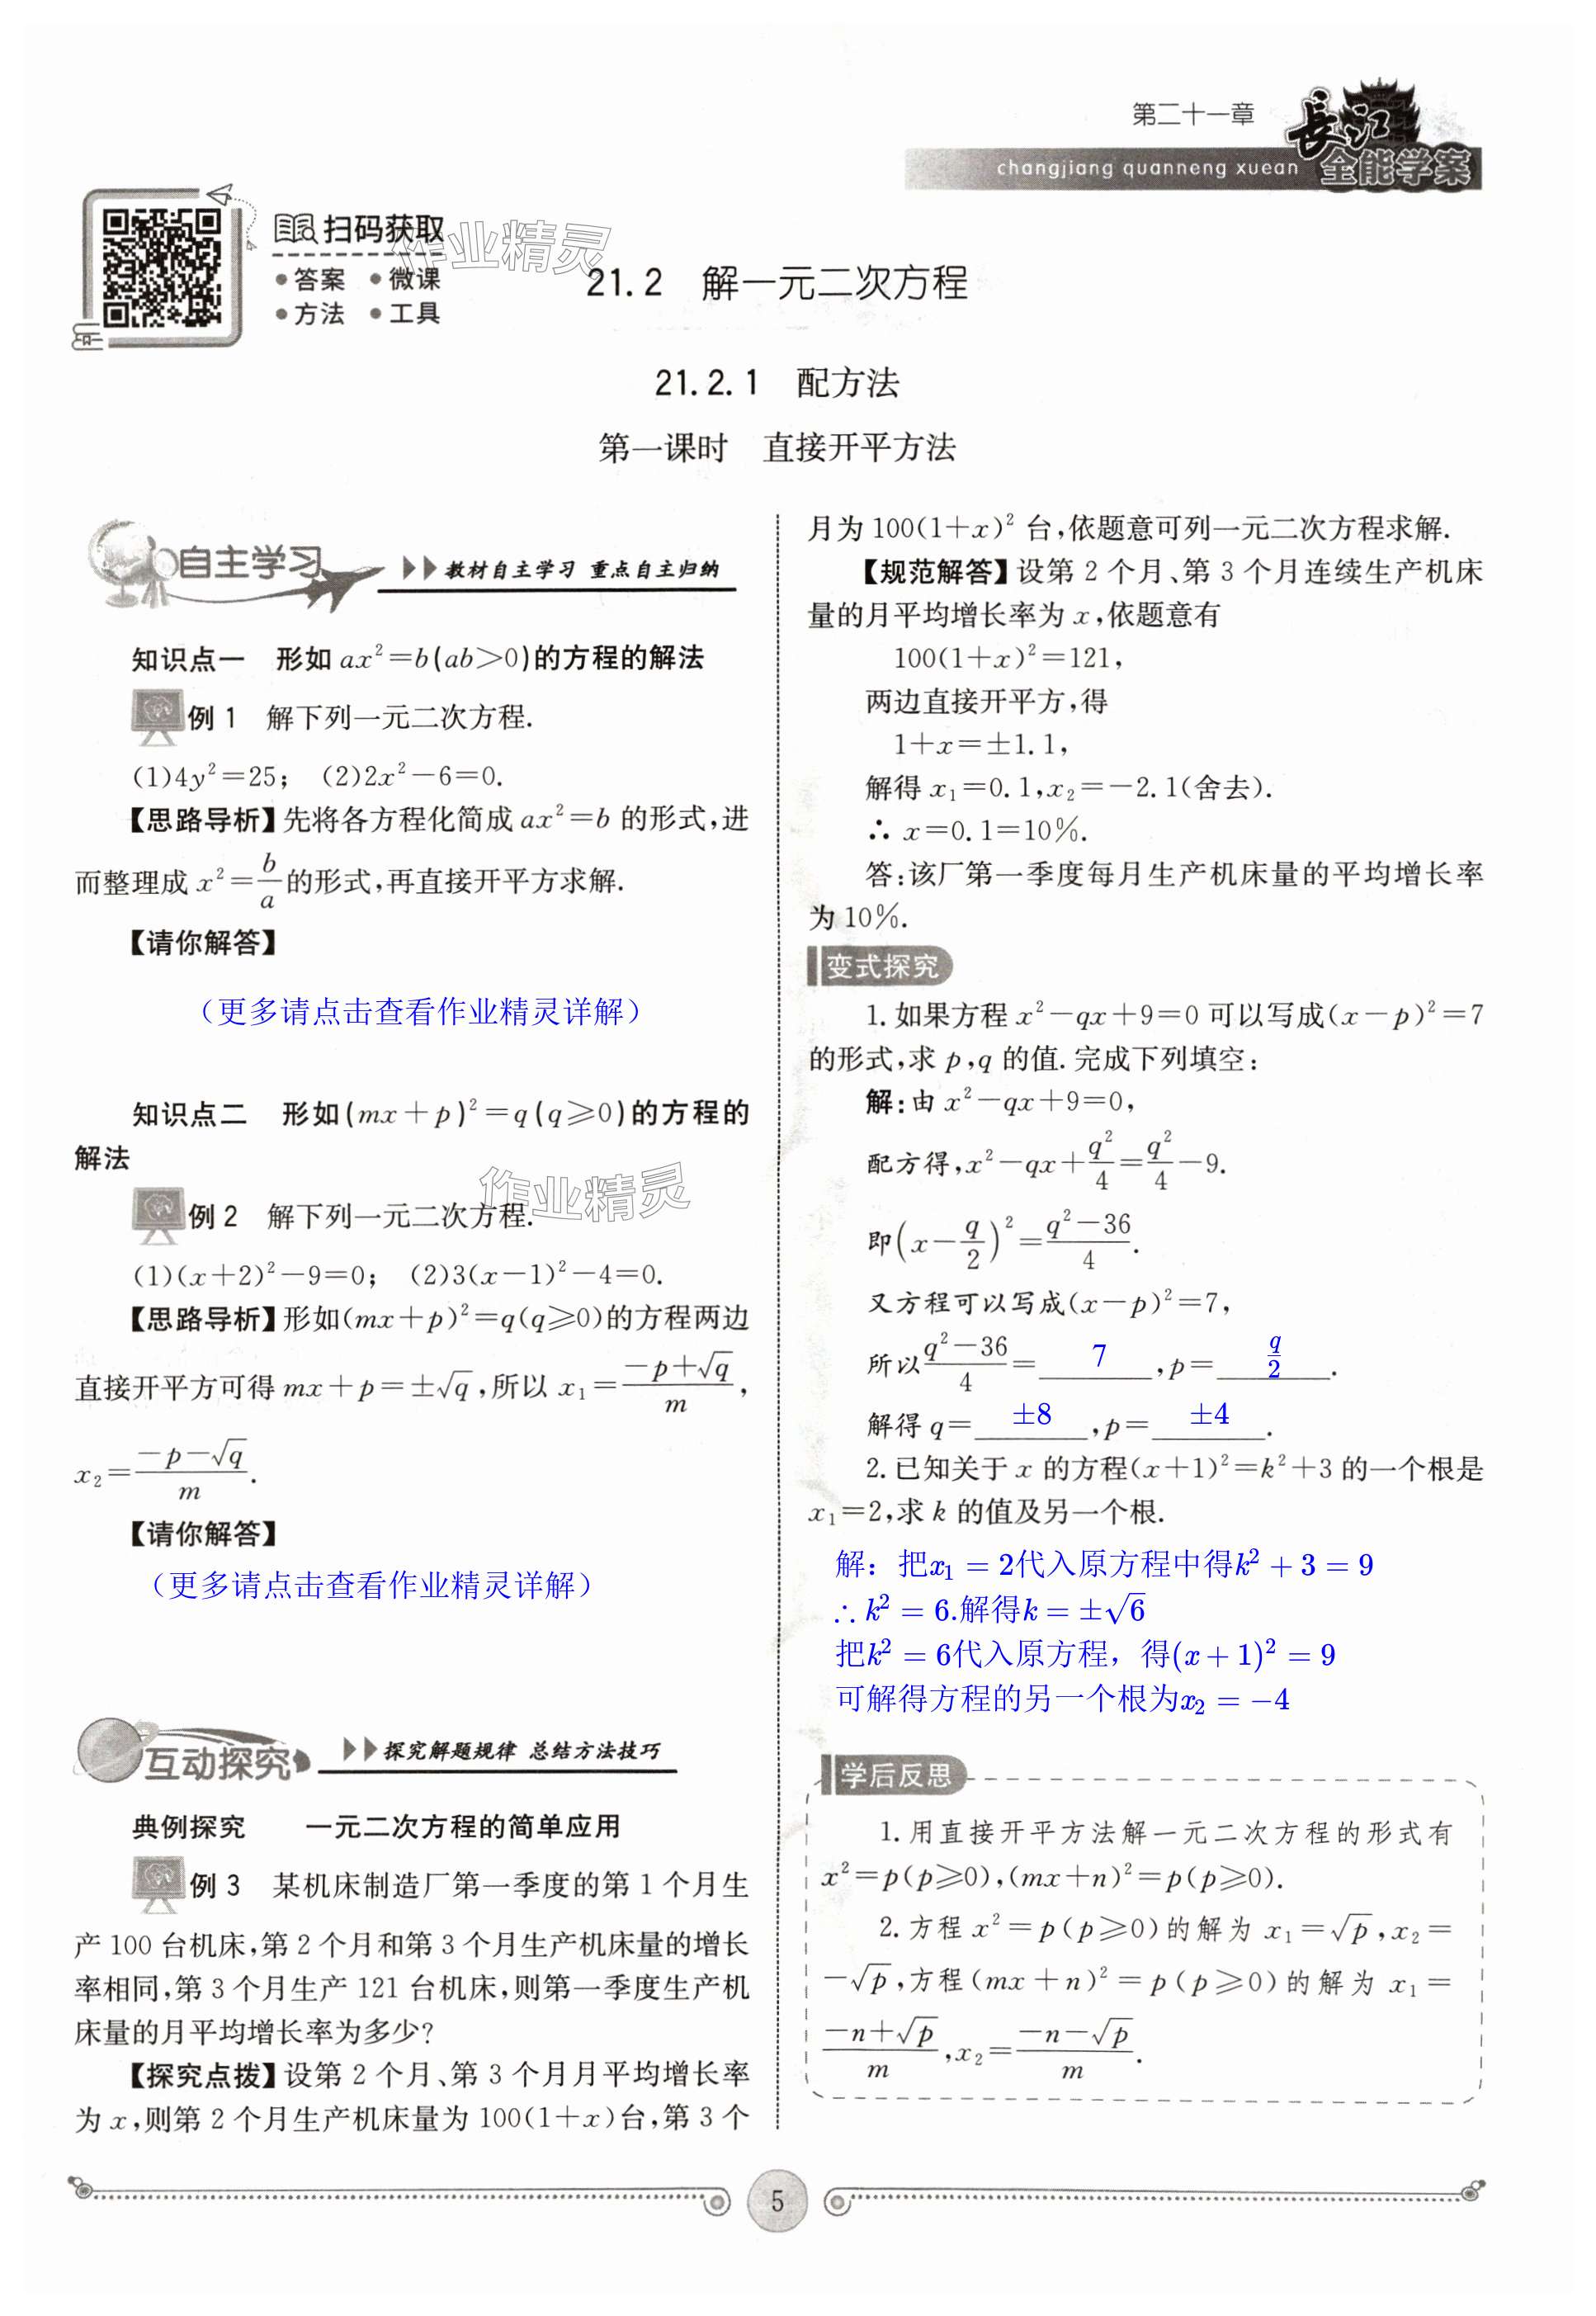 第二十一章
長江
changjiang quanneng xuean 全能学案
扫码获取
●答案 ●微课
●方法 ●工具
作业精灵
21.2 解一元二次方程
21.2.1 配方法
第一课时 直接开平方法
自主学习 ▶▶教材自主学习 重点自主归纳
知识点一 形如 ax²=b(ab>0)的方程的解法
例 1 解下列一元二次方程.
(1)4y²=25; (2)2x²-6=0.
【思路导析】先将各方程化简成 ax²=b 的形式,进
而整理成 x²=b/a的形式,再直接开平方求解.
【请你解答】
（更多请点击查看作业精灵详解）
知识点二 形如(mx+p)²=q(q≥0)的方程的
解法
作业精灵
例 2 解下列一元二次方程.
(1)(x+2)²-9=0; (2)3(x-1)²-4=0.
【思路导析】形如(mx+p)²=q(q≥0)的方程两边
直接开平方可得 mx+p=±√q,所以 x₁=(-p+√q)/m,
x₂=(-p-√q)/m.
【请你解答】
（更多请点击查看作业精灵详解）
互动探究 ▶▶探究解题规律 总结方法技巧
典例探究 一元二次方程的简单应用
例 3 某机床制造厂第一季度的第 1 个月生
产 100 台机床,第 2 个月和第 3 个月生产机床量的增长
率相同,第 3 个月生产 121 台机床,则第一季度生产机
床量的月平均增长率为多少?
【探究点拨】设第 2 个月、第 3 个月月平均增长率
为 x,则第 2 个月生产机床量为 100(1+x)台,第 3 个
月为 100(1+x)² 台,依题意可列一元二次方程求解.
【规范解答】设第 2 个月、第 3 个月连续生产机床
量的月平均增长率为 x,依题意有
100(1+x)²=121,
两边直接开平方,得
1+x=±1.1,
解得 x₁=0.1,x₂=-2.1(舍去).
∴ x=0.1=10%.
答:该厂第一季度每月生产机床量的平均增长率
为 10%.
变式探究
1. 如果方程 x²-qx+9=0 可以写成(x-p)²=7
的形式,求 p,q 的值. 完成下列填空:
解:由 x²-qx+9=0,
配方得,x²-qx+q²/4=q²/4-9.
即(x-q/2)²=(q²-36)/4.
又方程可以写成(x-p)²=7,
所以(q²-36)/4=7,p=q/2.
解得 q=±8,p=±4.
2. 已知关于 x 的方程(x+1)²=k²+3 的一个根是
x₁=2,求 k 的值及另一个根.
解：把x₁=2代入原方程中得k²+3=9
∴k²=6.解得k=±√6
把k²=6代入原方程，得(x+1)²=9
可解得方程的另一个根为x₂=-4
学后反思
1. 用直接开平方法解一元二次方程的形式有
x²=p(p≥0),(mx+n)²=p(p≥0).
2. 方程 x²=p(p≥0)的解为 x₁=√p,x₂=
-√p,方程(mx+n)²=p(p≥0)的解为 x₁=
(-n+√p)/m,x₂=(-n-√p)/m.
5